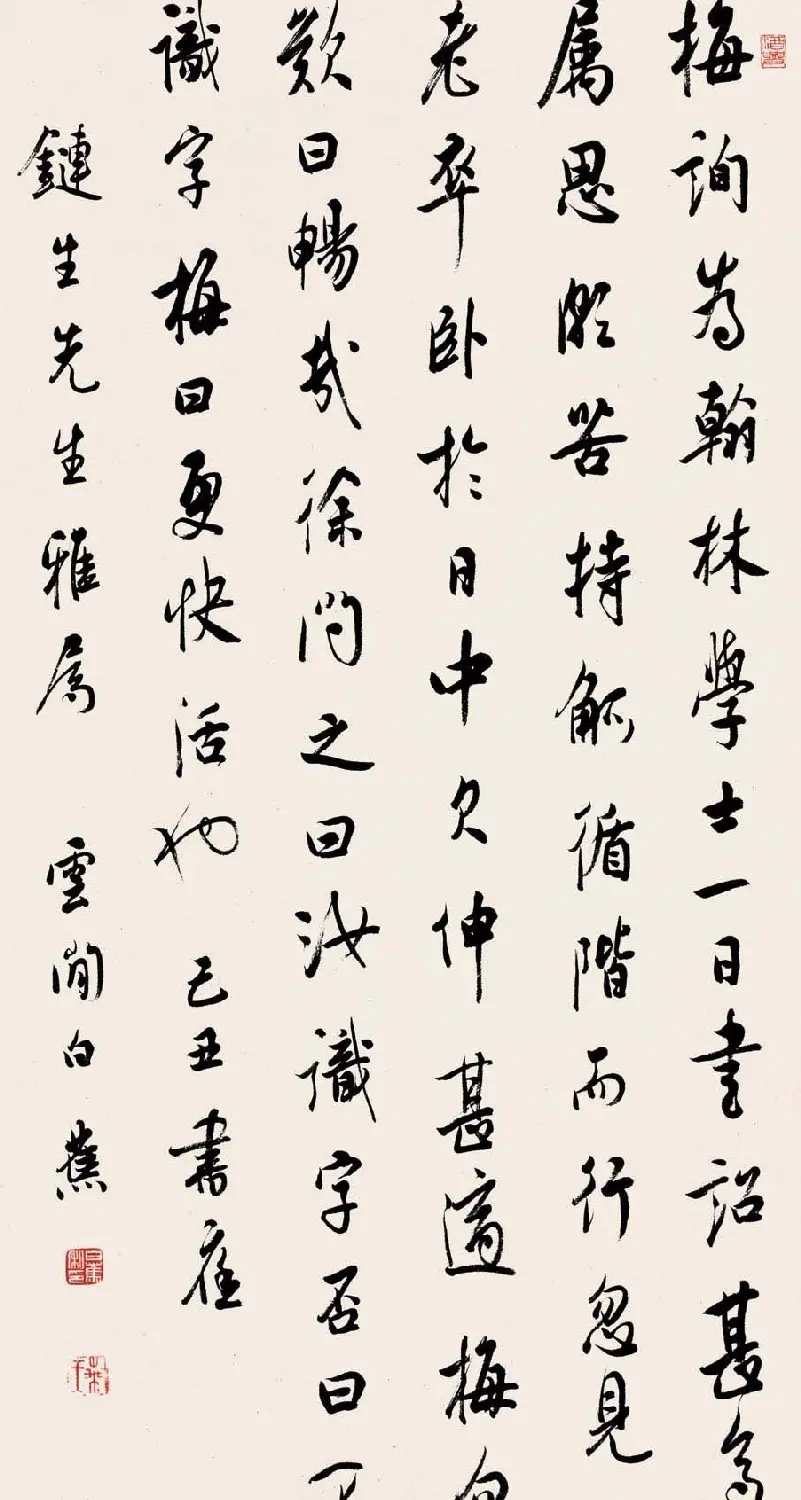 梅詢為翰林學士一日書詔甚多
属思頗苦持觚循階而行忽見
老卒卧於日中欠伸甚適梅
歎曰暢哉徐問之曰汝識字否曰不
識字梅曰更快活也 己丑書應
鏈生先生雅属 雲間白蕉